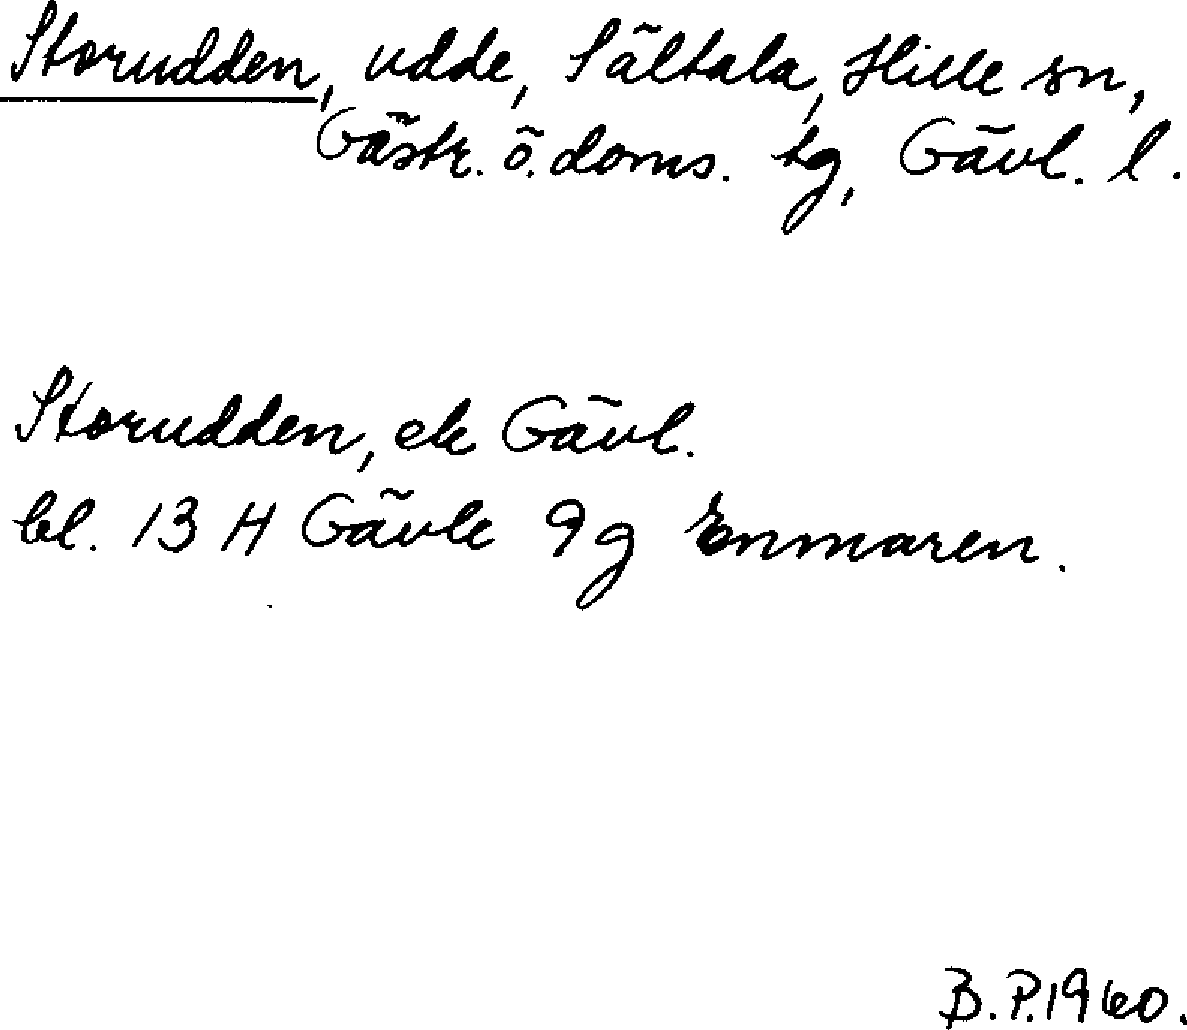 Storudden, udde, Sältala, Hille sn,
Gästr. ö. doms. tg, Gävl. l.
Storudden, ek Gävl.
bl. 13 H Gävle 9g Enmaren.
B.P.1960.